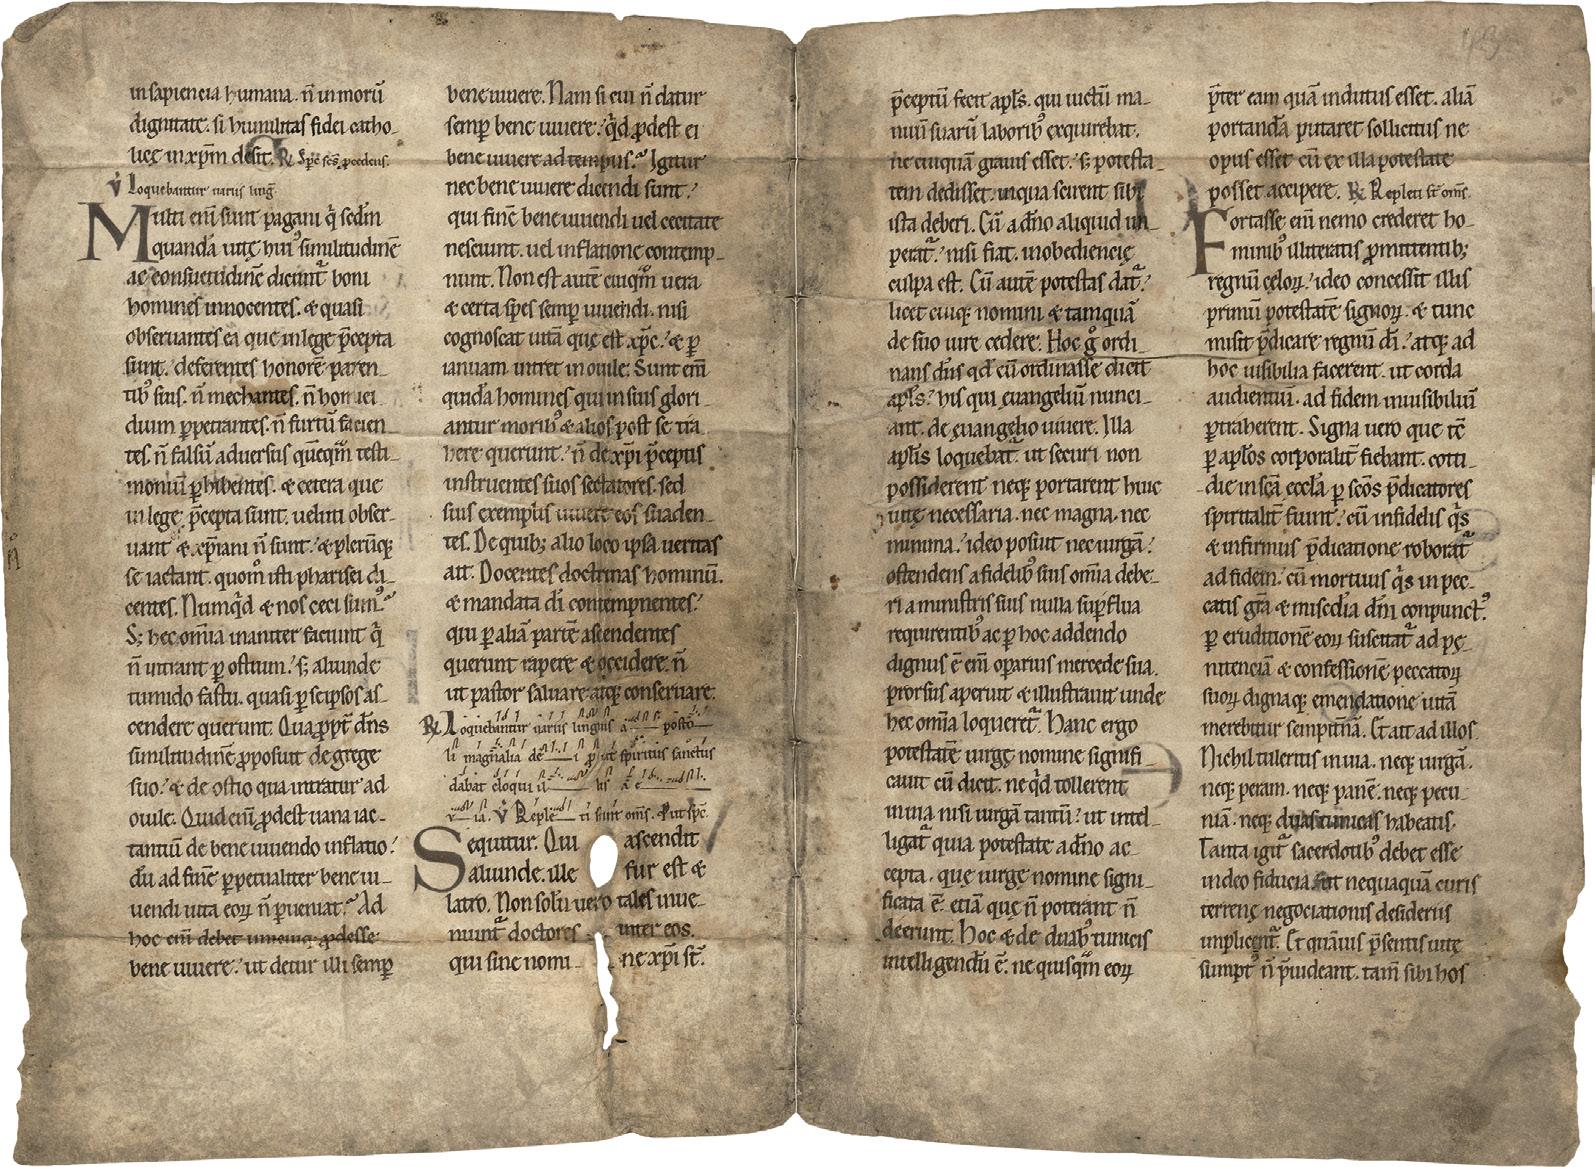 in sapiencia humana. n̄ in morū
dignitate. si humilitas fidei catho-
licę in xp̄m desit. ℟ Sp̄c sc̄s p̱cedens.
℣ Loquebantur uariis ling̃
Multi enī sunt pagani q̇ sed̄m
quandā uitę hui᷒ similitudinē
ac consuetudinē dicunt᷑ boni
homines innocentes. & quasi
obseruantes ea que in lege p̄cepta
sunt. deferentes honorē paren-
tib᷒ suis. n̄ mechantes. n̄ homici-
dium ꝑpetrantes. n̄ furtū facien-
tes. n̄ falsū aduersus quēqm̄ testi-
moniū ꝑhibentes. & cetera que
in lege p̄cepta sunt. uelitti obser-
uant & xp̄iani n̄ sunt. & plerūq;
se iactant. quom̊ isti pharisei di-
centes. Numq̇d & nos ceci sum᷒.
S; hec om̄ia inaniter faciunt q̇
n̄ intrant ꝑ ostium. s; aliunde
tumido fastu. quasi ꝑ seipsos as-
cendere querunt. Quaꝓpt̄ dn̄s
similitudinē ꝓposuit de grege
suo. & de ostio qua intratur ad
ouile. Quid enī ꝓdest uana iac-
tantiū de bene uiuendo inflatio.
dū ad finē ꝑpetualiter bene ui-
uendi uita eoꝝ n̄ ꝑueniat. Ad
hoc enī debet unicuiq; ꝓdesse
bene uiuere. ut detur illi semꝑ
bene uiuere. Nam si cui n̄ datur
semꝑ bene uiuere. q̇d ꝓdest ei
bene uiuere ad tempus. Igitur
nec bene uiuere dicendi sunt.
qui finē bene uiuendi uel cecitate
nesciunt. uel inflatione contemp-
nunt. Non est autē cuiqm̄ uera
& certa spes semp̱ uiuendi. nisi
cognoscat uitā que est xp̄c. & ꝑ
ianuam intret in ouile. Sunt enī
quidā homines qui in suis glori-
antur morib᷒ & alios post se tra-
here querunt. n̄ de xp̄i p̄ceptis
instruentes suos sectatores. sed
suis exemplis uiuere eos suaden-
tes. De quib; alio loco ipsa ueritas
ait. Docentes doctrinas hominū.
& mandata dī contempnentes.
qui ꝑ aliā partē ascendentes
querunt rapere & occidere. n̄
ut pastor saluare atq; conseruare.
℟ Loquebantur uariis linguis a posto-
li magnalia de i p̱ut spiritus sanctus
dabat eloqui il lis a e
u ia. ℣ Reple ti sunt om̄s. Put sp̄c.
Sequitur. Qui ascendit
aliunde. ille fur est &
latro. Non solū uero tales inue-
niunt᷑ doctores inter eos.
qui sine nomi-ne xp̄i st̄.
p̄ceptū fecit apl̄s. qui uictū ma-
nuū suarū laborib᷒ exquirebat.
ne cuiquam grauis esset. s; potesta-
tem dedisset. in qua scirent sibi
ista deberi. Cū a dn̄o aliquid im-
perat᷑. nisi fiat. inobediencię
culpa est. Cū autē potestas dat᷑.
licet cuiq; nomini & tamquā
de suo iure cedere. Hoc g̊ ordi-
nans dn̄s qd̄ eū ordinasse dicit
apl̄s. his qui ęuangeliū nunci-
ant. de ęuangelio uiuere. Illa
apl̄is loquebat᷑. ut securi non
possiderent neq; portarent huic
uitę necessaria. nec magna. nec
minima. ideo posuit nec uirgā.
ostendens a fidelib᷒ suis om̄ia debe-
ri a ministris suis nulla suꝑflua
requirentib᷒ ac ꝑ hoc addendo
dignus ē enī oꝑarius mercede sua.
prorsus aperuit & illustrauit unde
hec omīa loqueret᷑. Hanc ergo
potestatē uirgę nomine signifi-
cauit cū dicit. ne q̇d tollerent
in uia nisi uirgā tantū. ut intel-
ligat᷑ quia potestate a dn̄o ac-
cepta. quę uirgę nomine signi-
ficata ē. etiā quę n̄ poterant n̄
deerunt. Hoc & de duab᷒ tunicis
intelligendū ē. ne quisqm̄ eoꝝ
p̄ter eam quā indutus esset. aliā
portandā putaret sollicitus ne
opus esset cū ex illa potestate
posset accipere. ℟ Repleti st̄ om̄s.
Fortasse enī nemo crederet ho-
minib᷒ illiteratis ꝓmittentib;
regnū cęloꝝ. ideo concessit illis
primū potestatē signoꝝ. & tunc
misit p̄dicare regnū dī. atq; ad
hoc uisibilia facerent. ut corda
audientiū. ad fidem inuisibiliū
ꝑtraherent. Signa uero que tē
ꝑ apl̄os corporalit̄ fiebant. cotti-
die in sc̄a eccl̄a ꝑ sc̄os p̄dicatores
spiritalit̄ fiunt. cū infidelis q̇s
& infirmus p̄dicatione roborat᷑
ad fidem. cū mortuus q̇s in pec-
catis gr̄a & miscd̄ia dn̄i conpunct᷒.
ꝑ eruditionē eoꝝ suscitat᷑ ad pę-
nitenciā & confessionē peccatoꝝ
suoꝝ dignaq; emendatione uitā
merebitur sempit̄nā. Et ait ad illos.
Nichil tuleritis in uia. neq; uirgā.
neq; peram. neq; panē. neq; pecu-
niā. neq; duas tunicas habeatis.
Tanta igit᷑ sacerdotib᷒ debet esse
in deo fiducia ut nequaquā curis
terrenę negociationis desideriis
implicent᷑. Et quāuis p̄sentis uitę
sumpt᷒ n̄ p̄uideant. tam̄ sibi hos